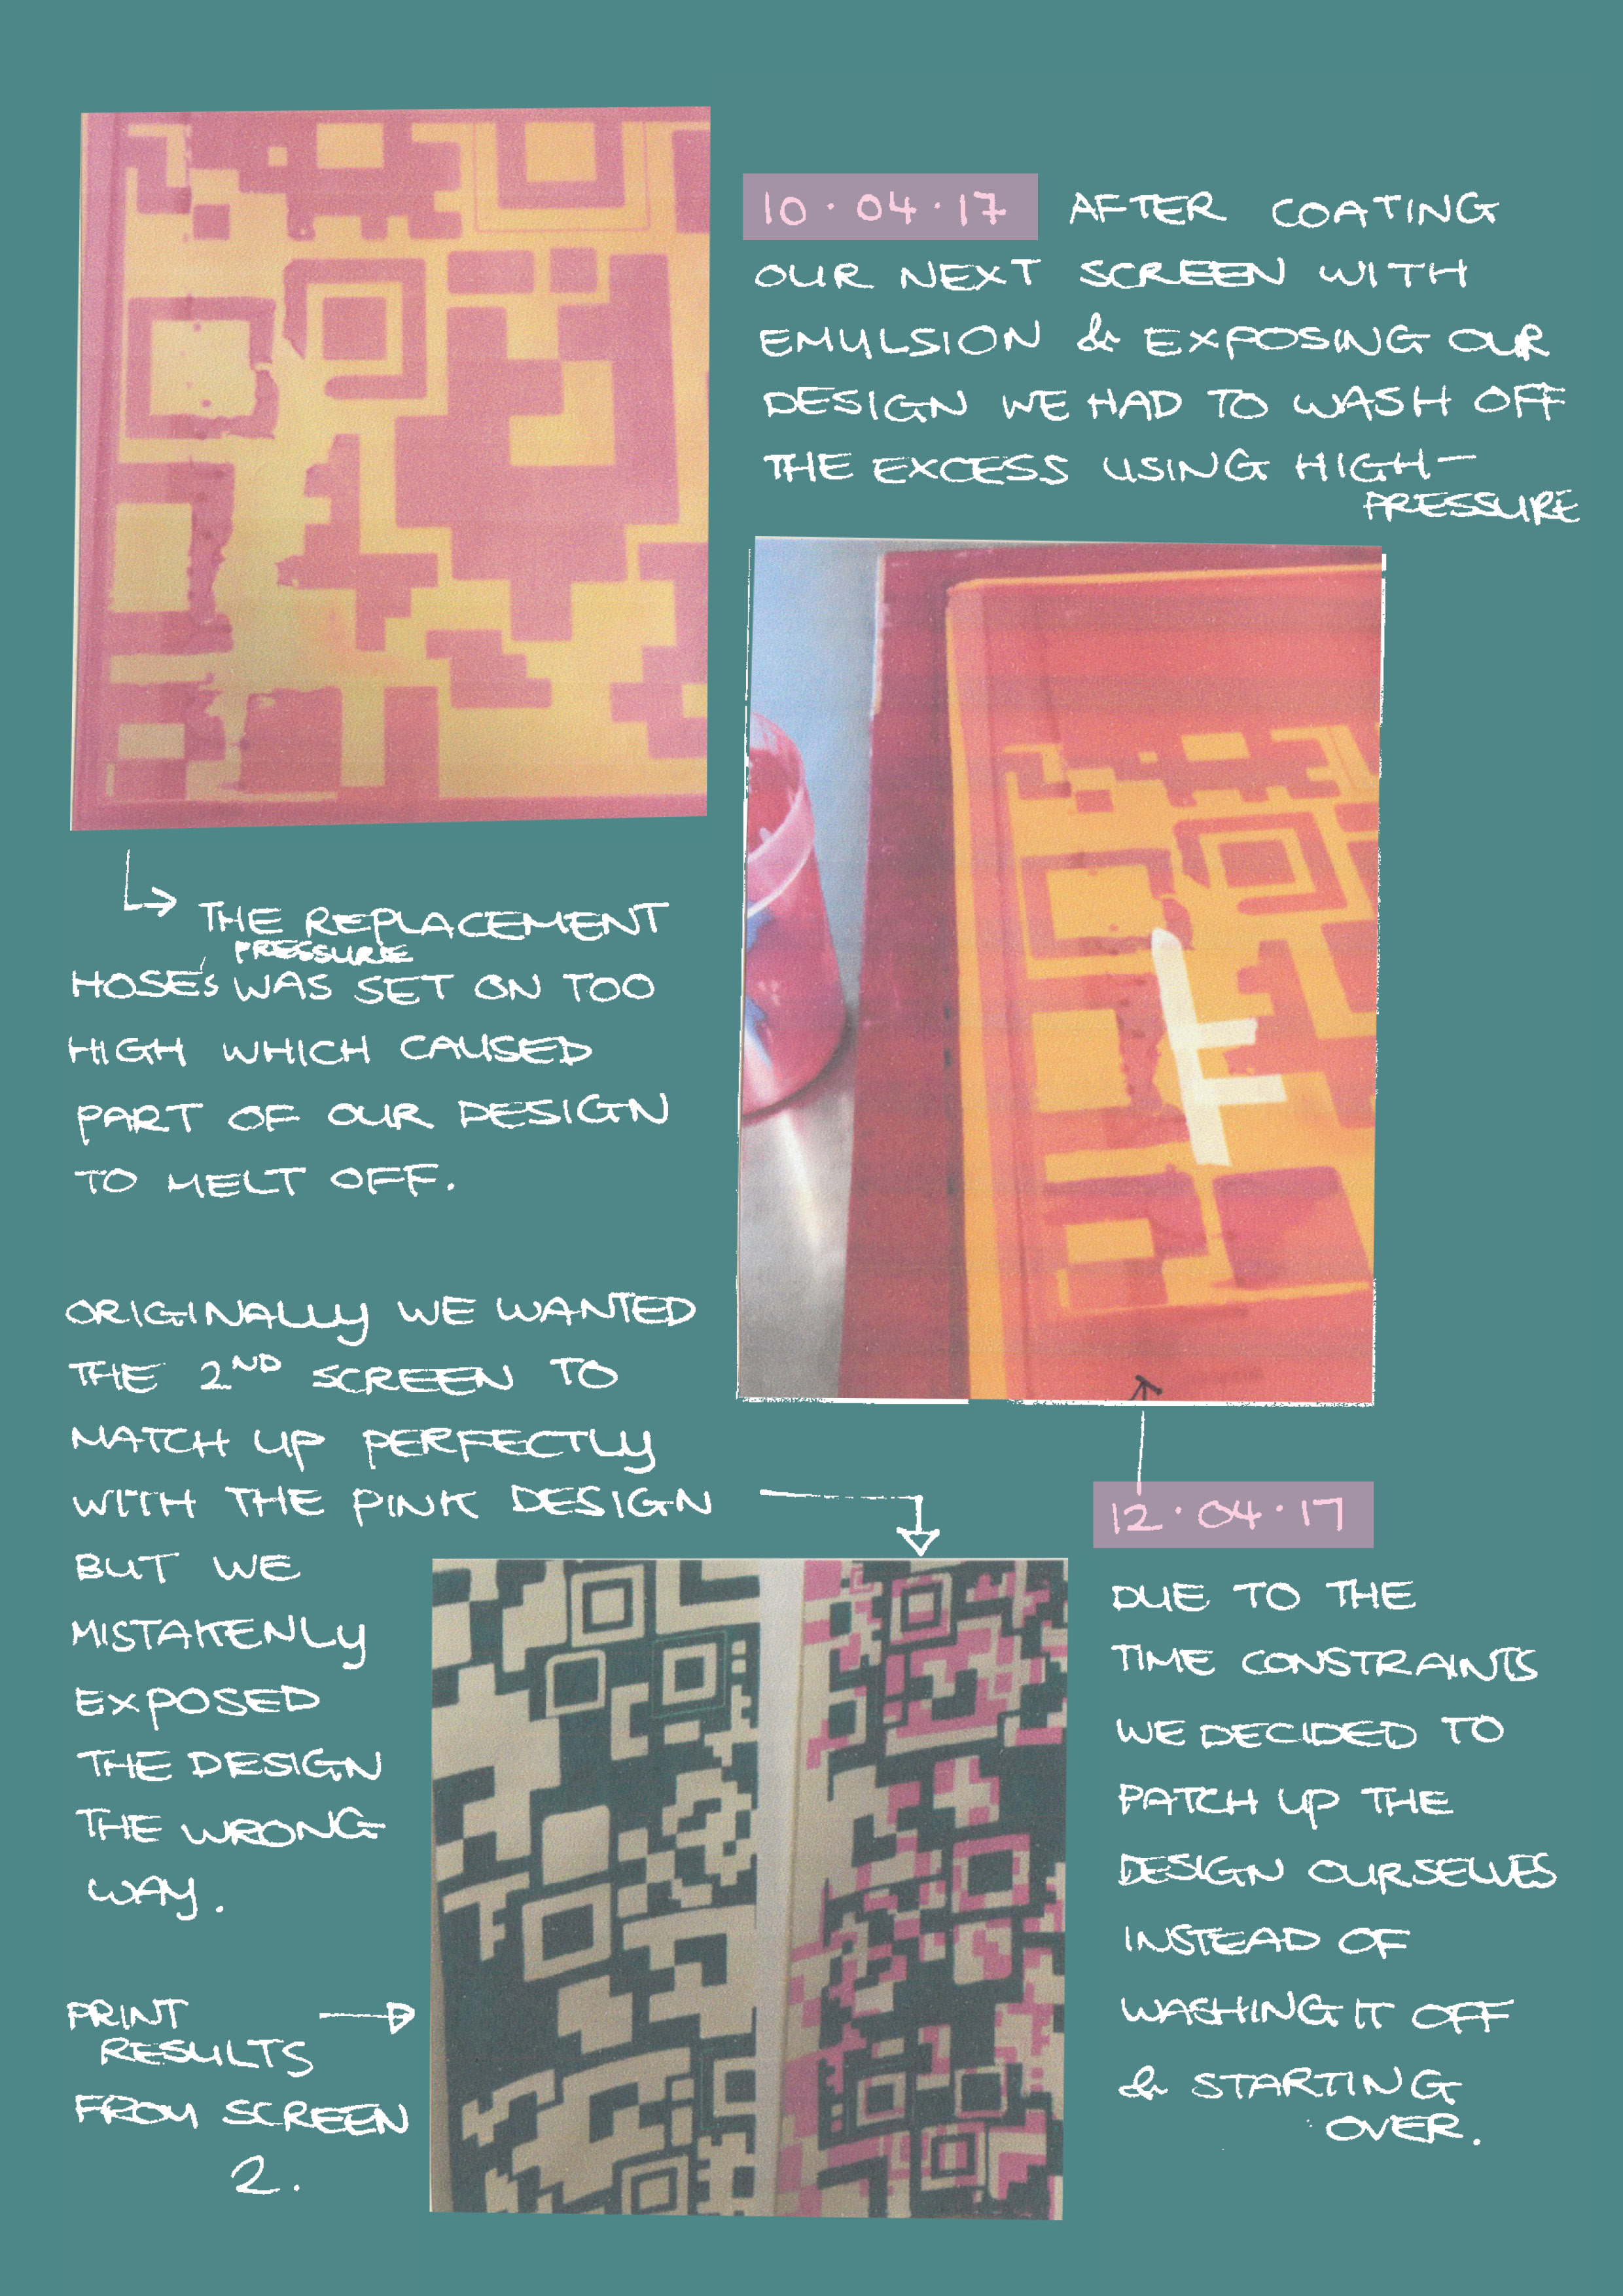 10.04.17 AFTER COATING
OUR NEXT SCREEN WITH
EMULSION & EXPOSING OUR
DESIGN WE HAD TO WASH OFF
THE EXCESS USING HIGH-
PRESSURE
THE REPLACEMENT
PRESSURE
HOSE'S WAS SET ON TOO
HIGH WHICH CAUSED
PART OF OUR DESIGN
TO MELT OFF.
ORIGINALLY WE WANTED
THE 2ND SCREEN TO
MATCH UP PERFECTLY
WITH THE PINK DESIGN
BUT WE
MISTAKENLY
EXPOSED
THE DESIGN
THE WRONG
WAY.
PRINT
RESULTS
FROM SCREEN
2.
12.04.17
DUE TO THE
TIME CONSTRAINTS
WE DECIDED TO
PATCH UP THE
DESIGN OURSELVES
INSTEAD OF
WASHING IT OFF
& STARTING
OVER.